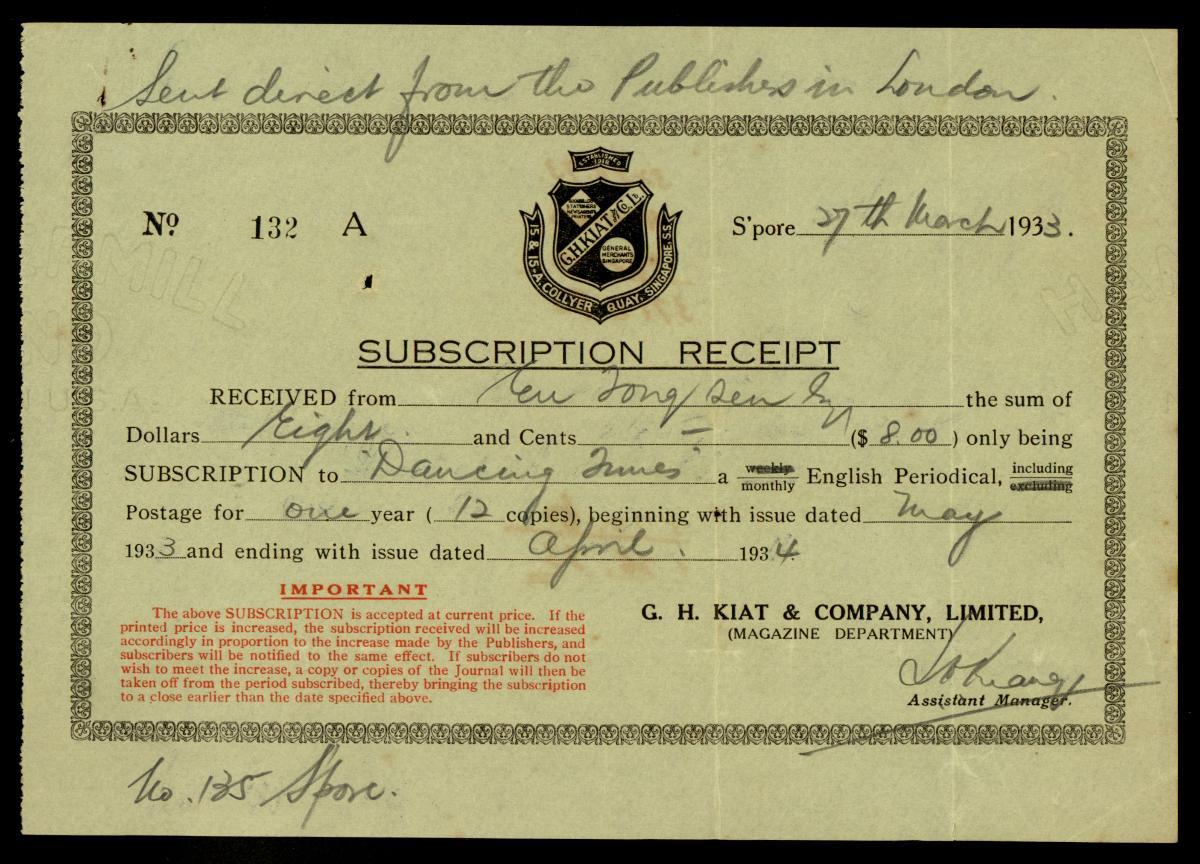 Sent direct from the Publishers in London.
ESTABLISHED
1918
BOOKSELLERS
STATIONERS
NEWSAGENTS
PRINTERS
G.H. KIAT & CO. LD.
GENERAL
MERCHANTS
SINGAPORE
15 & 15-A. COLLYER QUAY. SINGAPORE. S.S.
No 132 A
S'pore 27th March 1933.
SUBSCRIPTION RECEIPT
RECEIVED from Eu Tong Sen Esq the sum of
Dollars Eight and Cents — ($ 8.00 ) only being
SUBSCRIPTION to "Dancing Times" a weekly monthly English Periodical, including excluding
Postage for one year ( 12 copies), beginning with issue dated May
1933 and ending with issue dated April. 1934.
IMPORTANT
The above SUBSCRIPTION is accepted at current price. If the
printed price is increased, the subscription received will be increased
accordingly in proportion to the increase made by the Publishers, and
subscribers will be notified to the same effect. If subscribers do not
wish to meet the increase, a copy or copies of the Journal will then be
taken off from the period subscribed, thereby bringing the subscription
to a close earlier than the date specified above.
G. H. KIAT & COMPANY, LIMITED,
(MAGAZINE DEPARTMENT)
Assistant Manager.
No. 135 Spore.